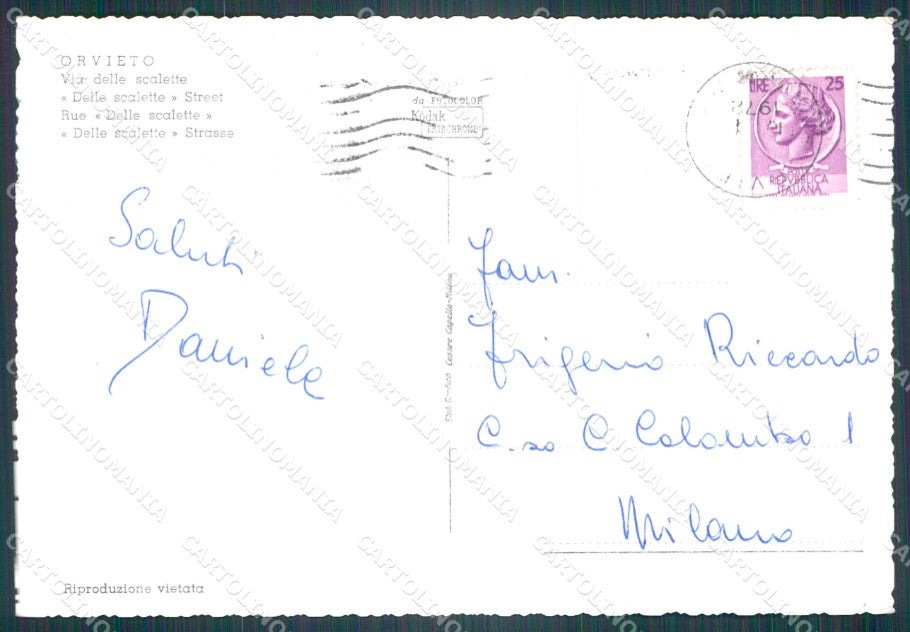 ORVIETO
Via delle scalette
« Delle scalette » Street
Rue « Delle scalette »
« Delle scalette » Strasse
da FOTOCOLOR
Kodak
EKTACHROME
LIRE 25
REPVBBLICA
ITALIANA
Saluti
Daniele
Fam.
Frigerio Riccardo
C.so C. Colombo 1
Milano
Cesare Capello-Milano
Riproduzione vietata
CARTOLINOMANIA